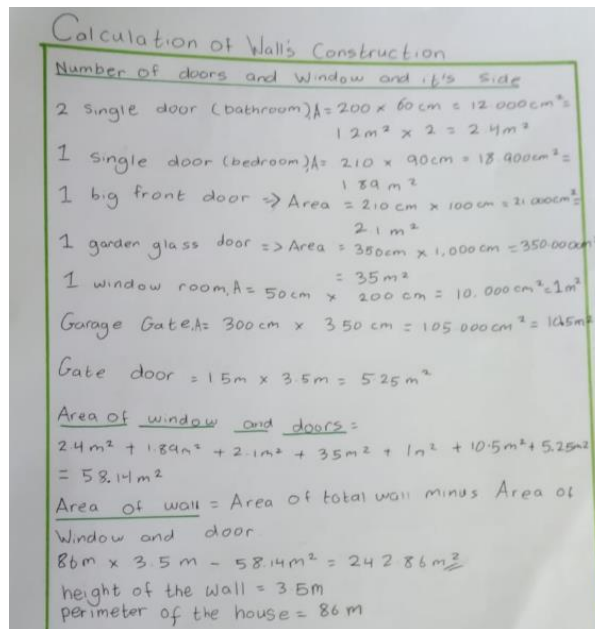 Calculation of Wall's Construction
Number of doors and window and it's side
2 single door (bathroom)A= 200 x 60 cm = 12.000cm²=
12m² x 2 = 2.4m²
1 single door (bedroom)A= 210 x 90cm = 18.900cm²=
189 m²
1 big front door => Area = 210 cm x 100 cm = 21.000cm²=
21m²
1 garden glass door => Area = 350cm x 1,000 cm = 350.000cm²
= 35m²
1 window room,A= 50cm x 200 cm = 10.000cm²=1m²
Garage Gate,A= 300cm x 350 cm = 105.000cm² = 10.5m²
Gate door = 15m x 3.5m = 5.25m²
Area of window and doors =
2.4m² + 1.89m² + 2.1m² + 35m² + 1m² + 10.5m² + 5.25m2
= 58.14m²
Area of wall = Area of total wall minus Area of
Window and door
86m x 3.5m - 58.14m² = 242.86m²
height of the wall = 3.5m
perimeter of the house = 86m